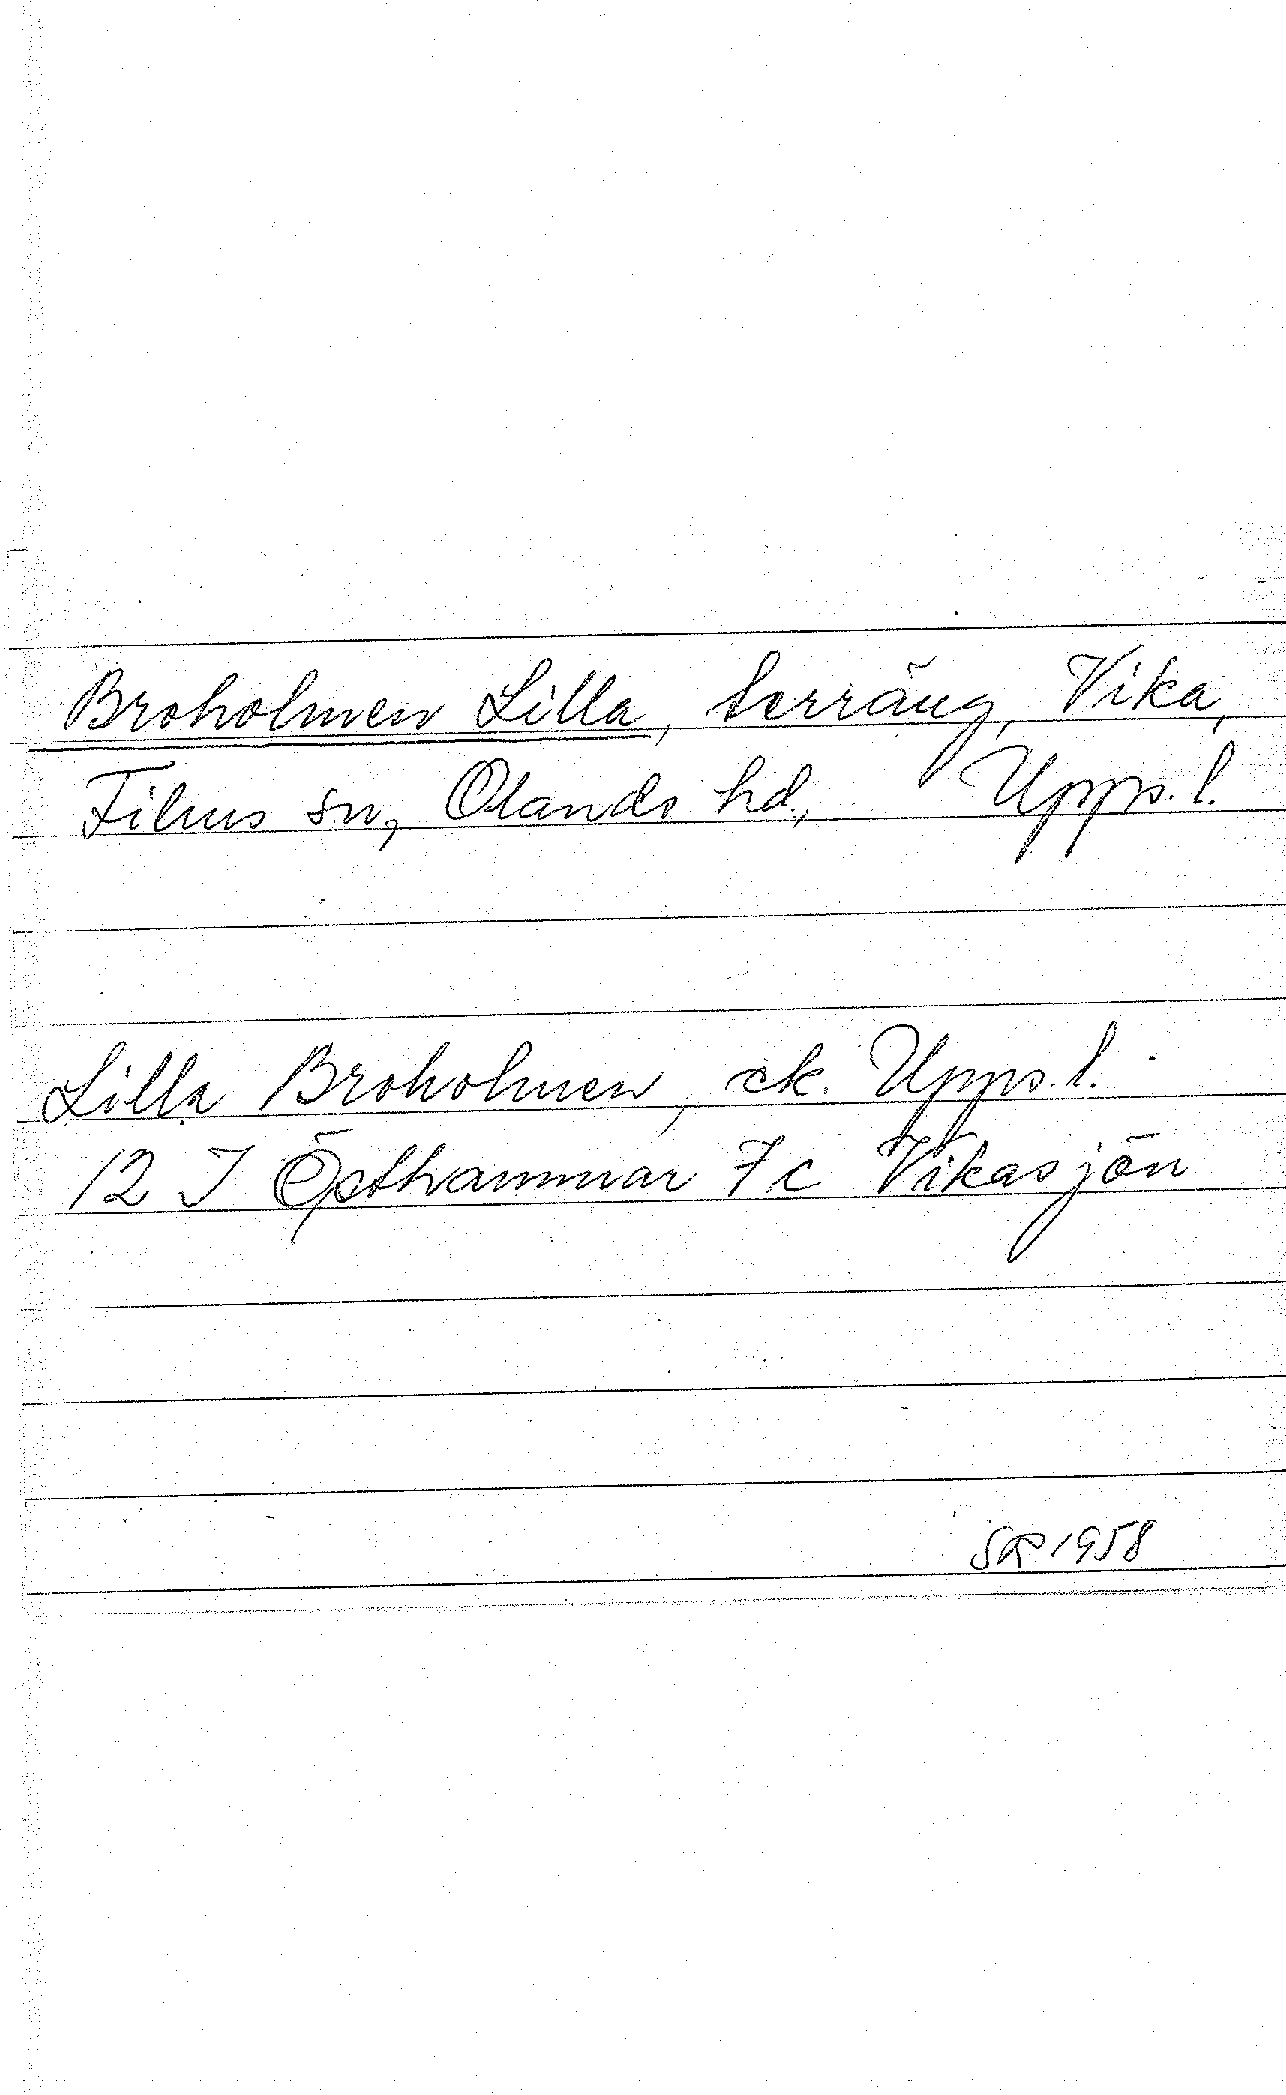 Broholmen Lilla, terräng, Vika,
Films sn, Olands hd., Upps. l.
Lilla Broholmen, ek. Upps. l.
12 I Östhammar 7 c Vikasjön
SR 1958